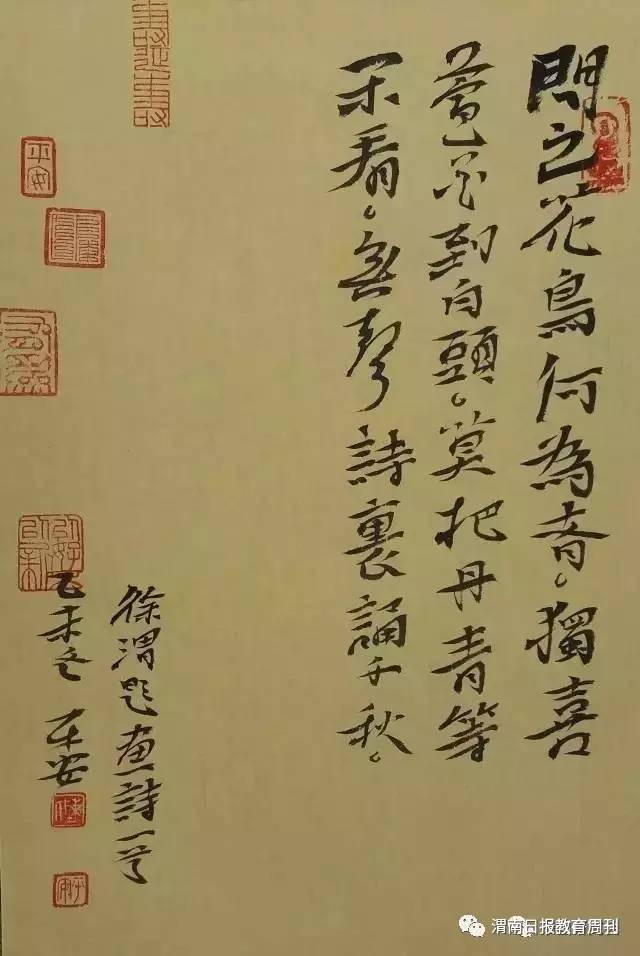 問之花鳥何為者。獨喜
萱花到白頭。莫把丹青等
閑看。無聲詩裏誦千秋。
徐渭題畫詩一首
乙未冬 平安
平安
渭南日报教育周刊